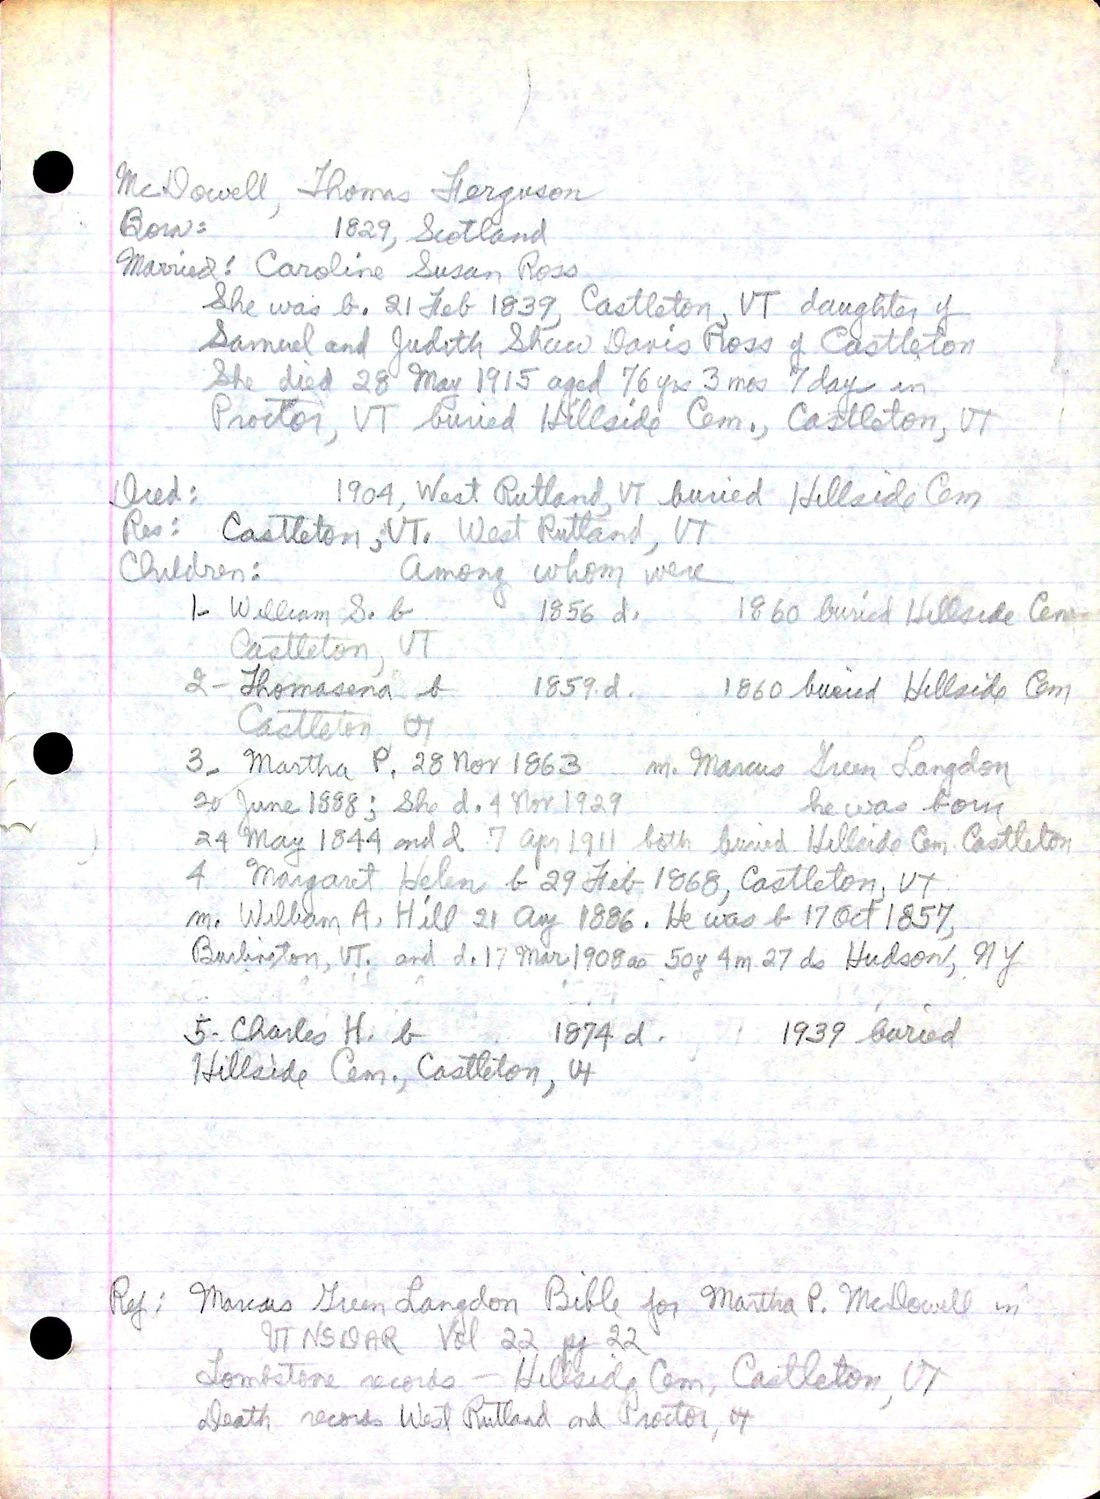 McDowell, Thomas Ferguson
Born: 1829, Scotland
Married: Caroline Susan Ross
She was b. 21 Feb 1839, Castleton, VT daughter of
Samuel and Judith Shaw Davis Ross of Castleton
She died 28 May 1915 aged 76 yrs 3 mos 7 days in
Proctor, VT buried Hillside Cem., Castleton, VT
Died: 1904, West Rutland, VT buried Hillside Cem
Res: Castleton, VT. West Rutland, VT
Children: Among whom were
1- William S. b 1856 d. 1860 buried Hillside Cem
Castleton, VT
2- Thomasena b 1859 d. 1860 buried Hillside Cem
Castleton VT
3- Martha P. 28 Nov 1863 m. Marcus Green Langdon
20 June 1888; She d. 4 Nov 1929 he was born
24 May 1844 and d 7 Apr 1911 both buried Hillside Cem Castleton
4 Margaret Helen b 29 Feb 1868, Castleton, VT
m. William A. Hill 21 Aug 1886. He was b 17 Oct 1857,
Burlington, VT. and d. 17 Mar 1908 ae 50y 4m 27 ds Hudson, NY
5- Charles H. b 1874 d. 1939 buried
Hillside Cem., Castleton, VT
Ref: Marcus Green Langdon Bible for Martha P. McDowell in
VT NSDAR Vol 22 pg 22
Tombstone records - Hillside Cem, Castleton, VT
Death records West Rutland and Proctor, VT